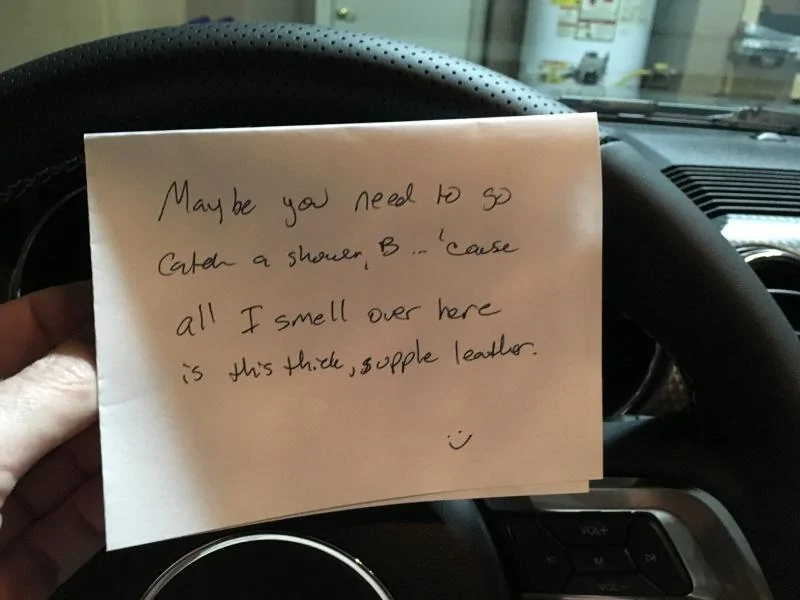 Maybe you need to go
catch a shower, B ... 'cause
all I smell over here
is this thick, supple leather.
:)
VOL+
M
VOL-